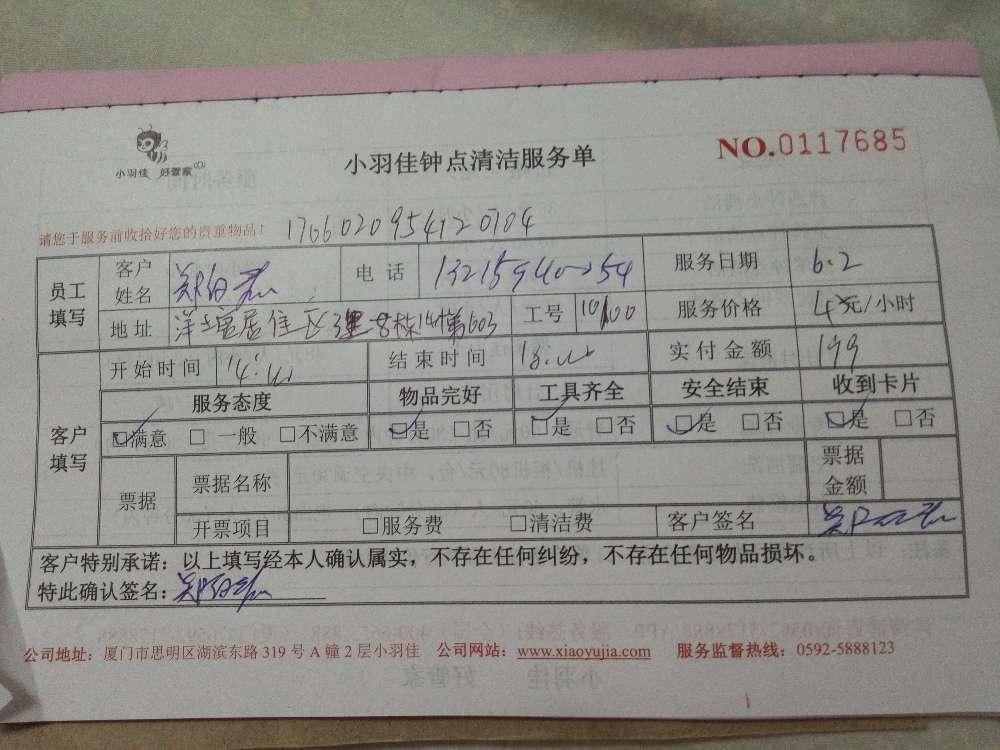 小羽佳 好管家
小羽佳钟点清洁服务单
NO.0117685
请您于服务前收拾好您的贵重物品！
员工填写
客户姓名
电话
服务日期 6.2
地址
工号
服务价格 元/小时
开始时间
结束时间
实付金额 199
客户填写
服务态度 物品完好 工具齐全 安全结束 收到卡片
☑满意 □一般 □不满意 ☑是 □否 ☑是 □否 ☑是 □否 ☑是 □否
票据
票据名称
票据金额
开票项目 □服务费 □清洁费 客户签名
客户特别承诺：以上填写经本人确认属实，不存在任何纠纷，不存在任何物品损坏。
特此确认签名：
公司地址：厦门市思明区湖滨东路 319 号 A 幢 2 层小羽佳 公司网站：www.xiaoyujia.com 服务监督热线：0592-5888123